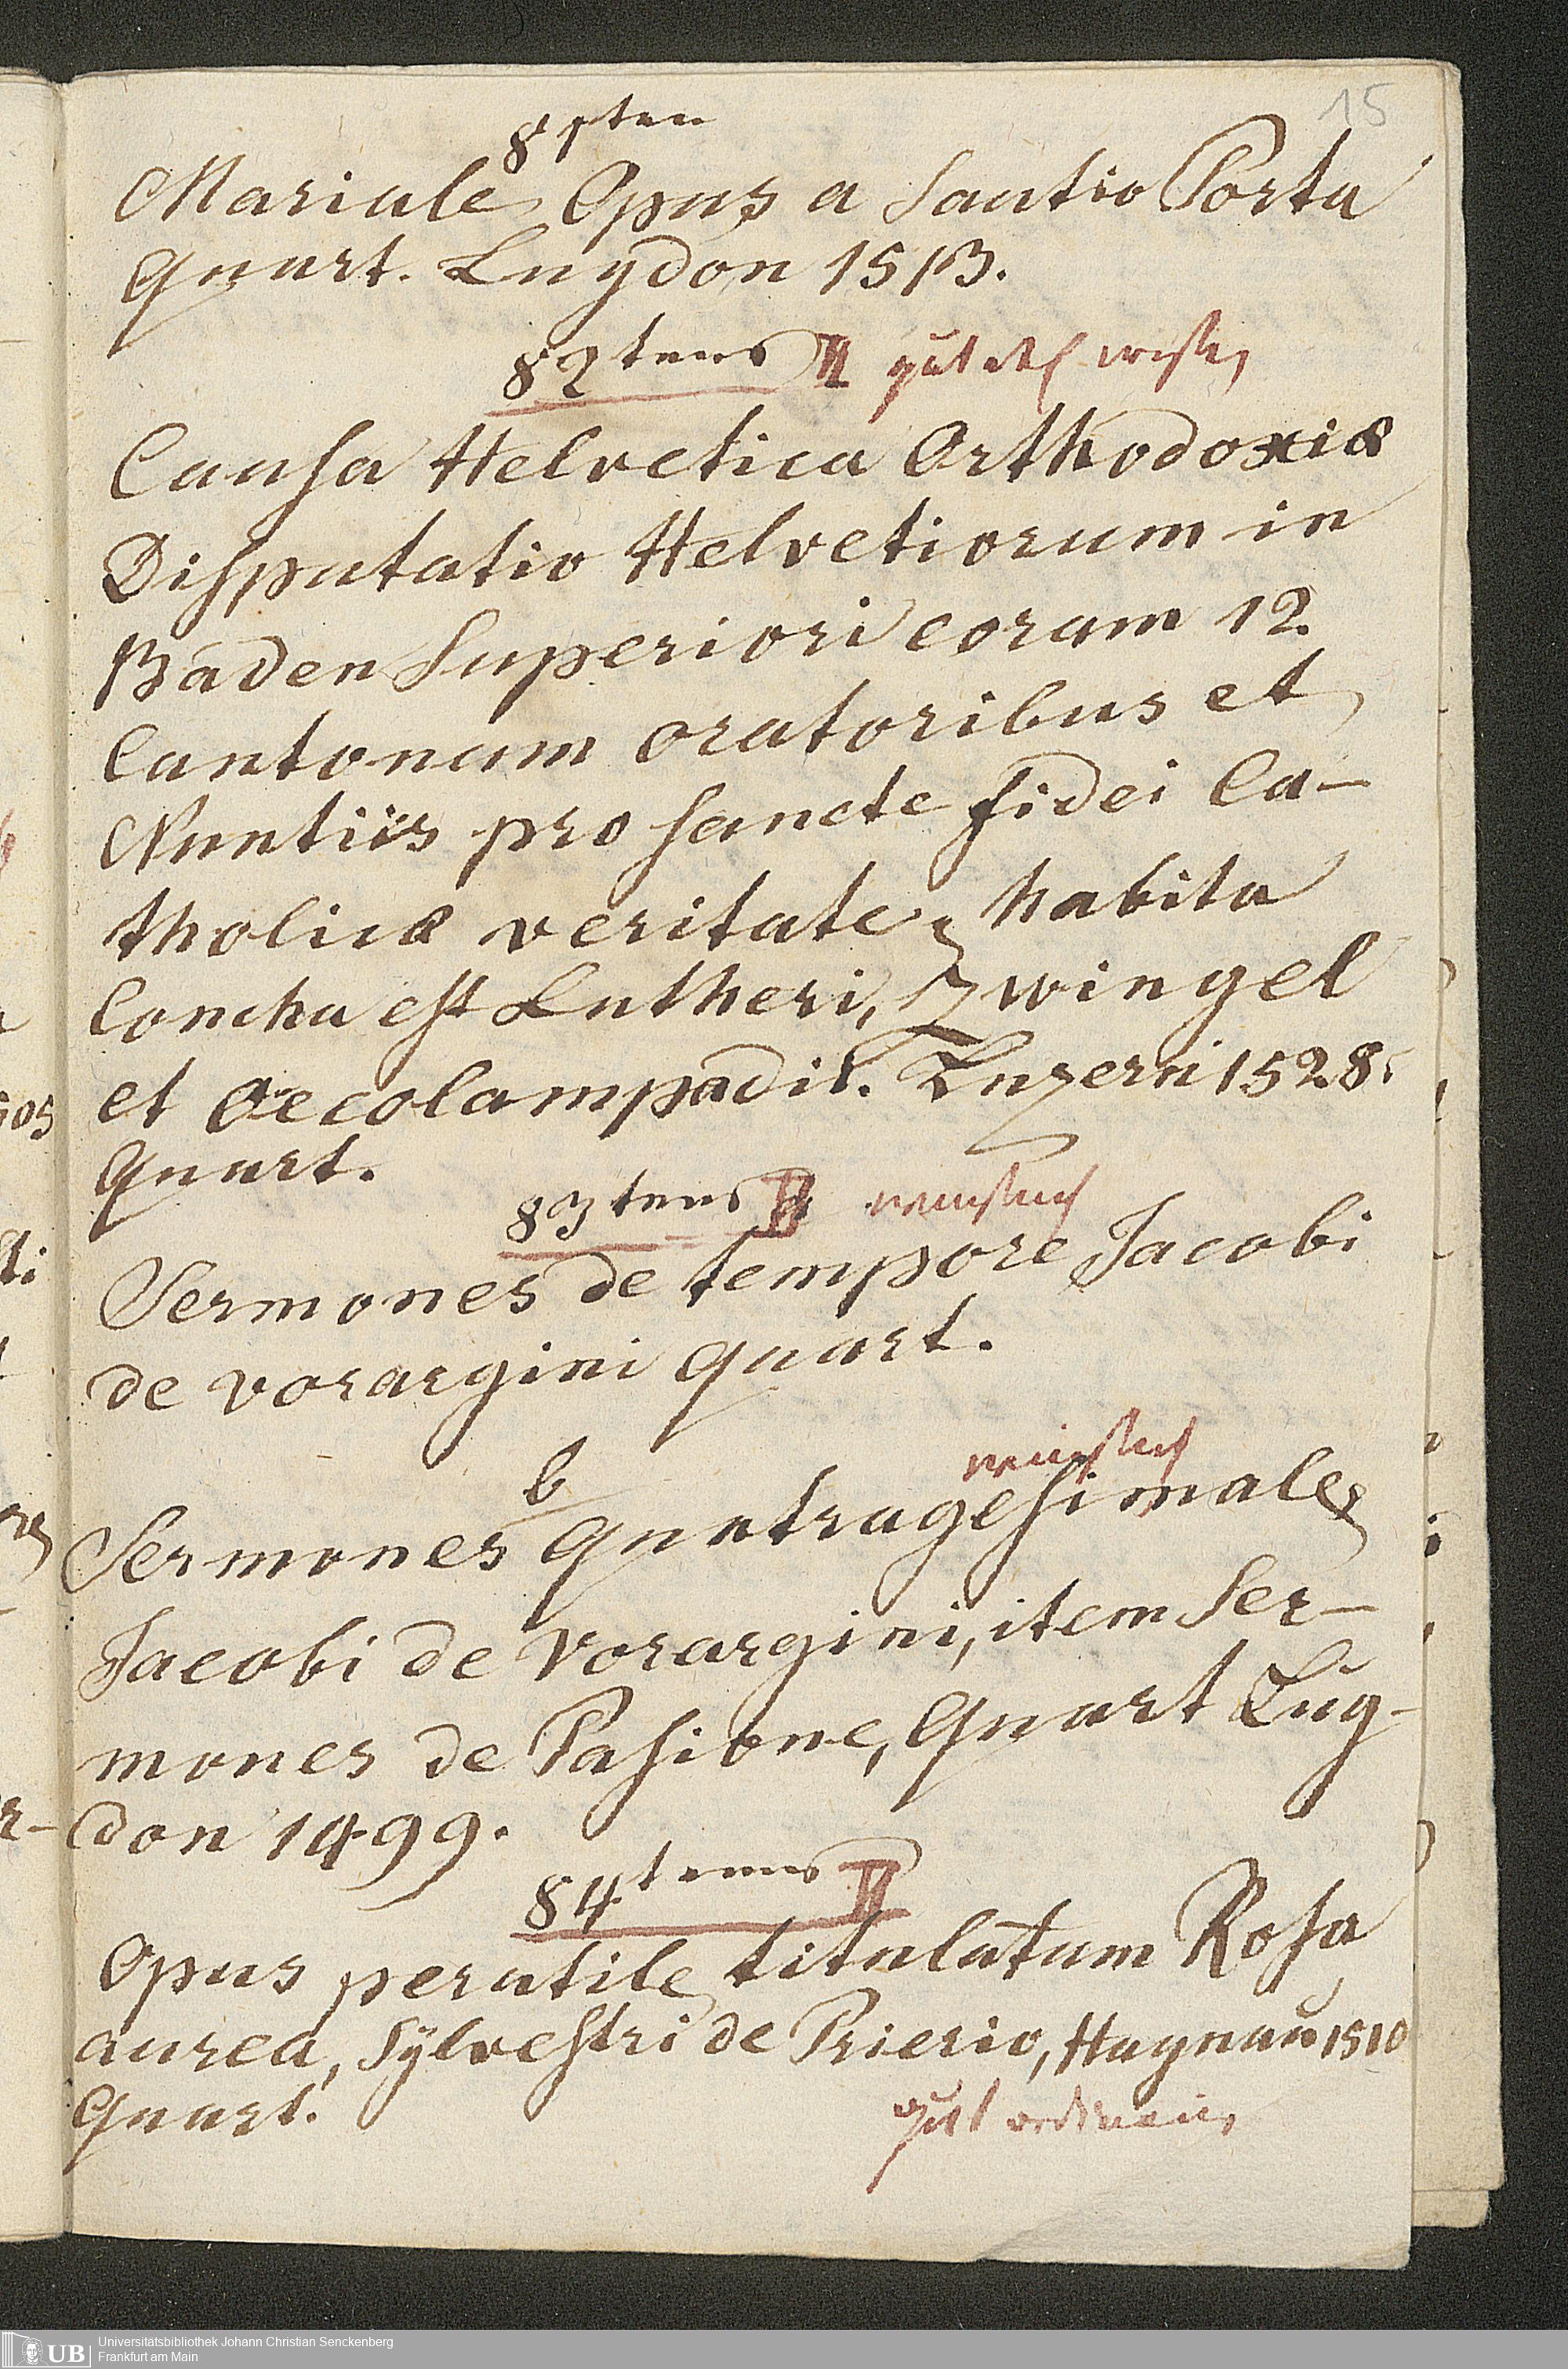 15
81ten
Mariale Opus a Santio Porta
Quart. Lugdon 1513.
82tens II gut
Causa Helvetica Orthodoxiæ
Disputatio Helvetiorum in
Baden Superiori coram 12.
Cantonum oratoribus et
Nuntiis pro sancte fidei Ca-
tholicæ veritate, habita
Concha est Lutheri, Zwingel
et Oecolampadii. Luzerni 1528.
Quart.
83tens II
Sermones de tempore Jacobi
de vorargini quart.
b
Sermones Quatragesimales
Jacobi de vorargini, item Ser-
mones de Pasione, Quart Lug-
don 1499.
84tens II
Opus perutile titulatum Rosa
aurea, Sÿlvestri de Prierio, Hagnau 1510
Quart.
gut
UB Universitätsbibliothek Johann Christian Senckenberg
Frankfurt am Main